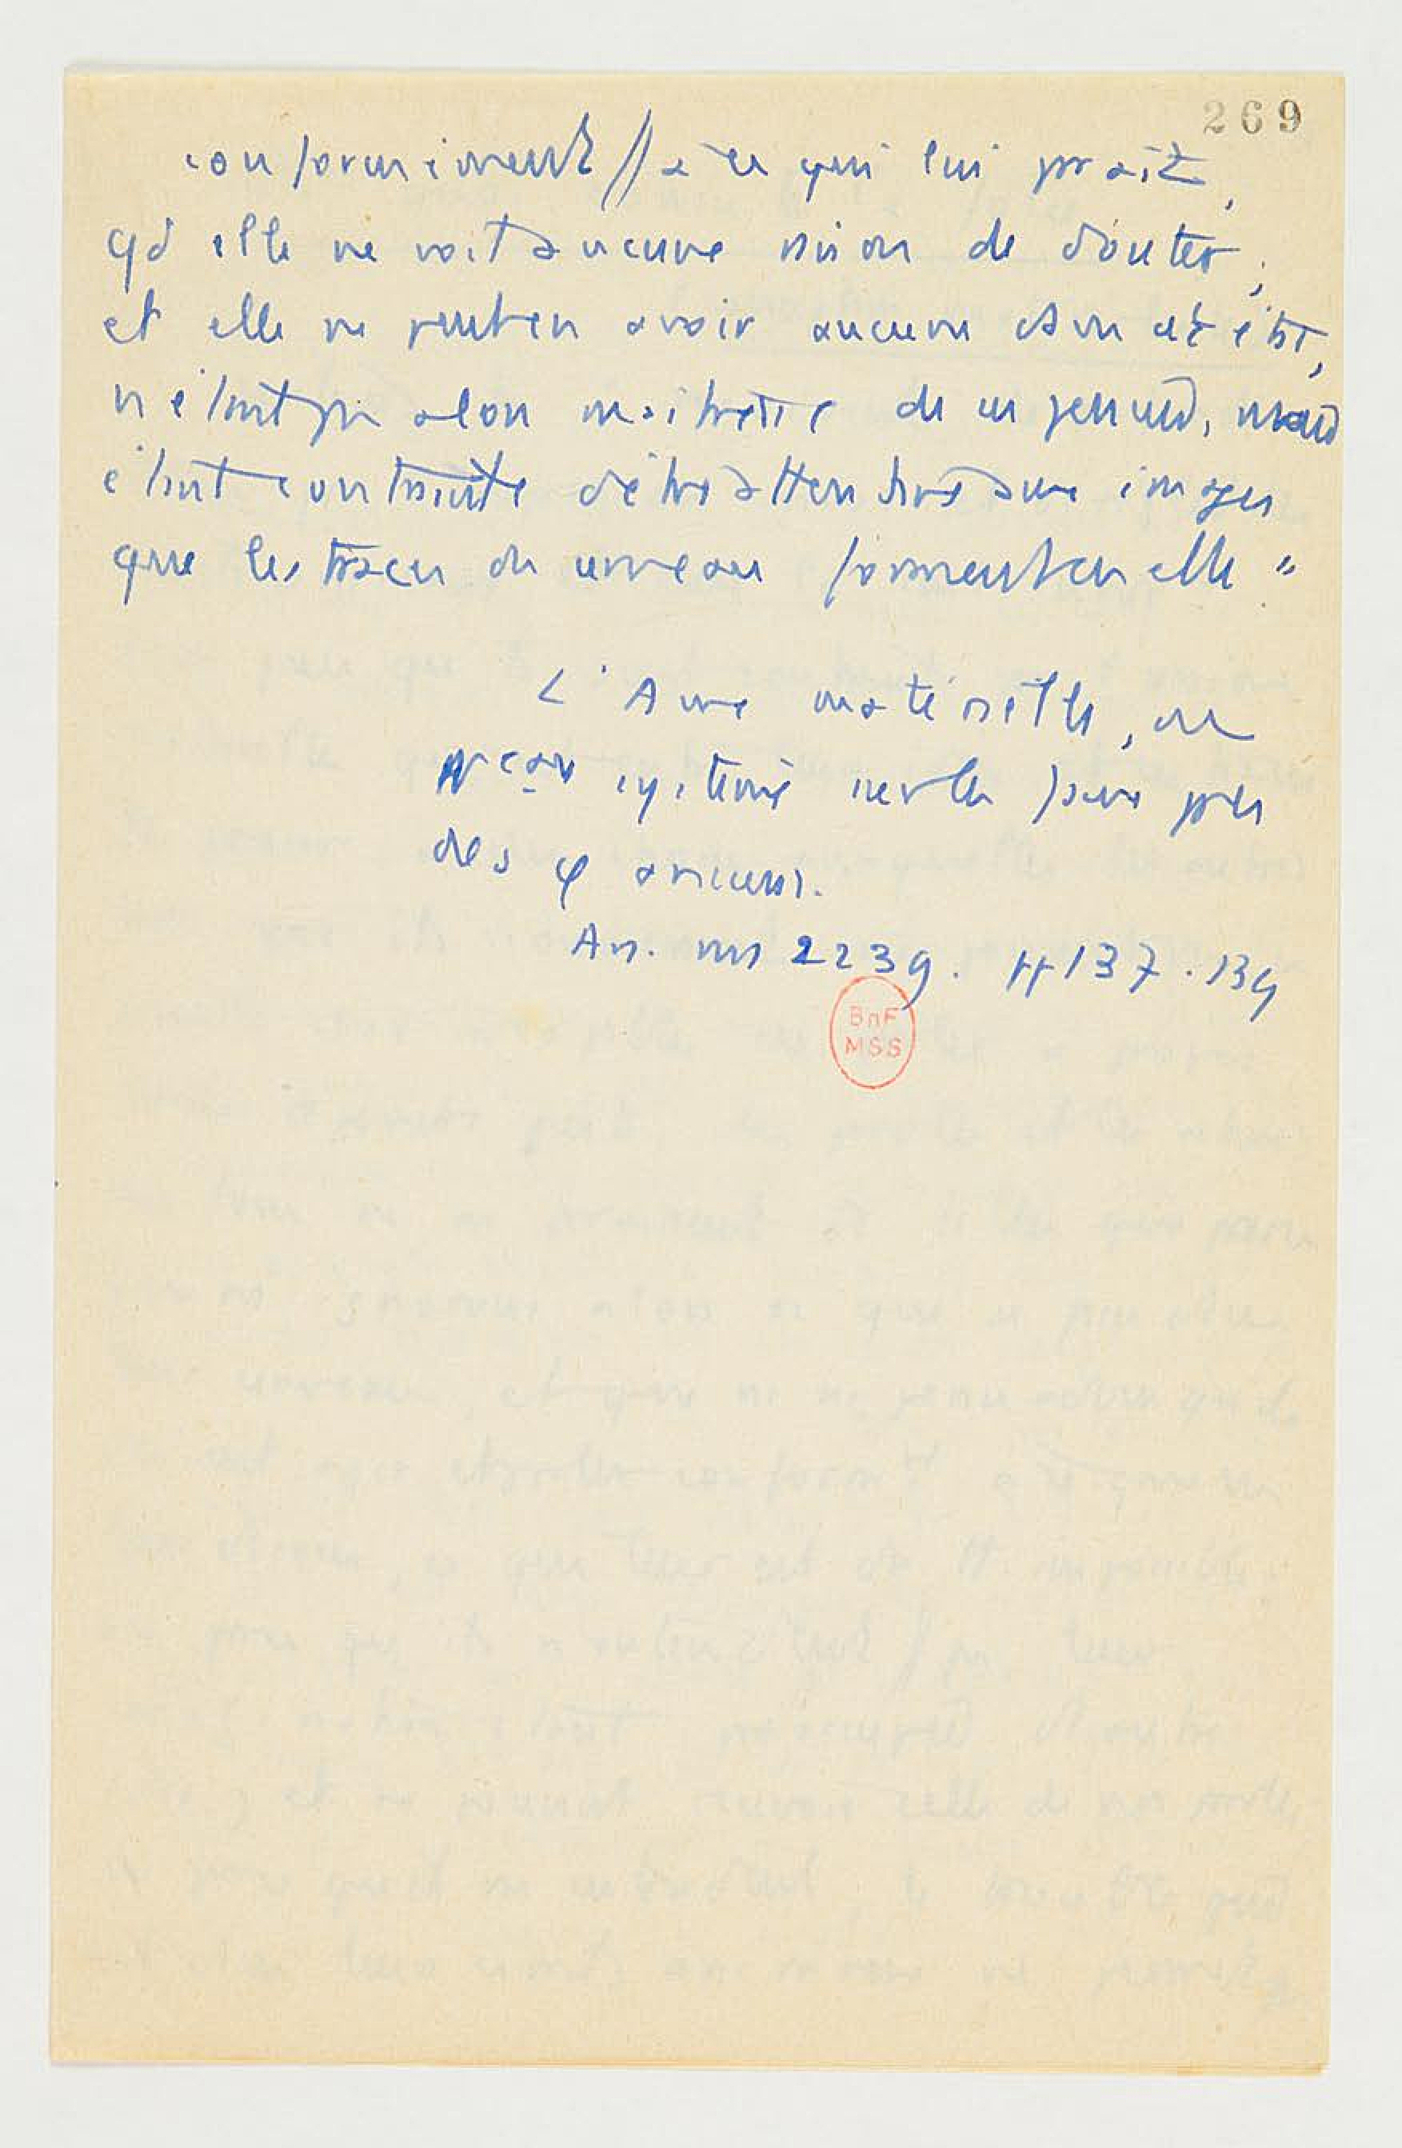 269
conformément // à ce qui lui paraît,
qd elle ne voit aucune raison de douter ;
et elle ne peut en avoir aucune dans cet état,
n'étant pas alors maîtresse de ses pensées, mais
étant contrainte d'être attentive aux images
que les traces du cerveau forment en elle "
L'Ame matérielle, ou
nveau système sur les purs pr.
des φ anciens.
Ars. ms 2239. ff 137. 139
BnF
MSS